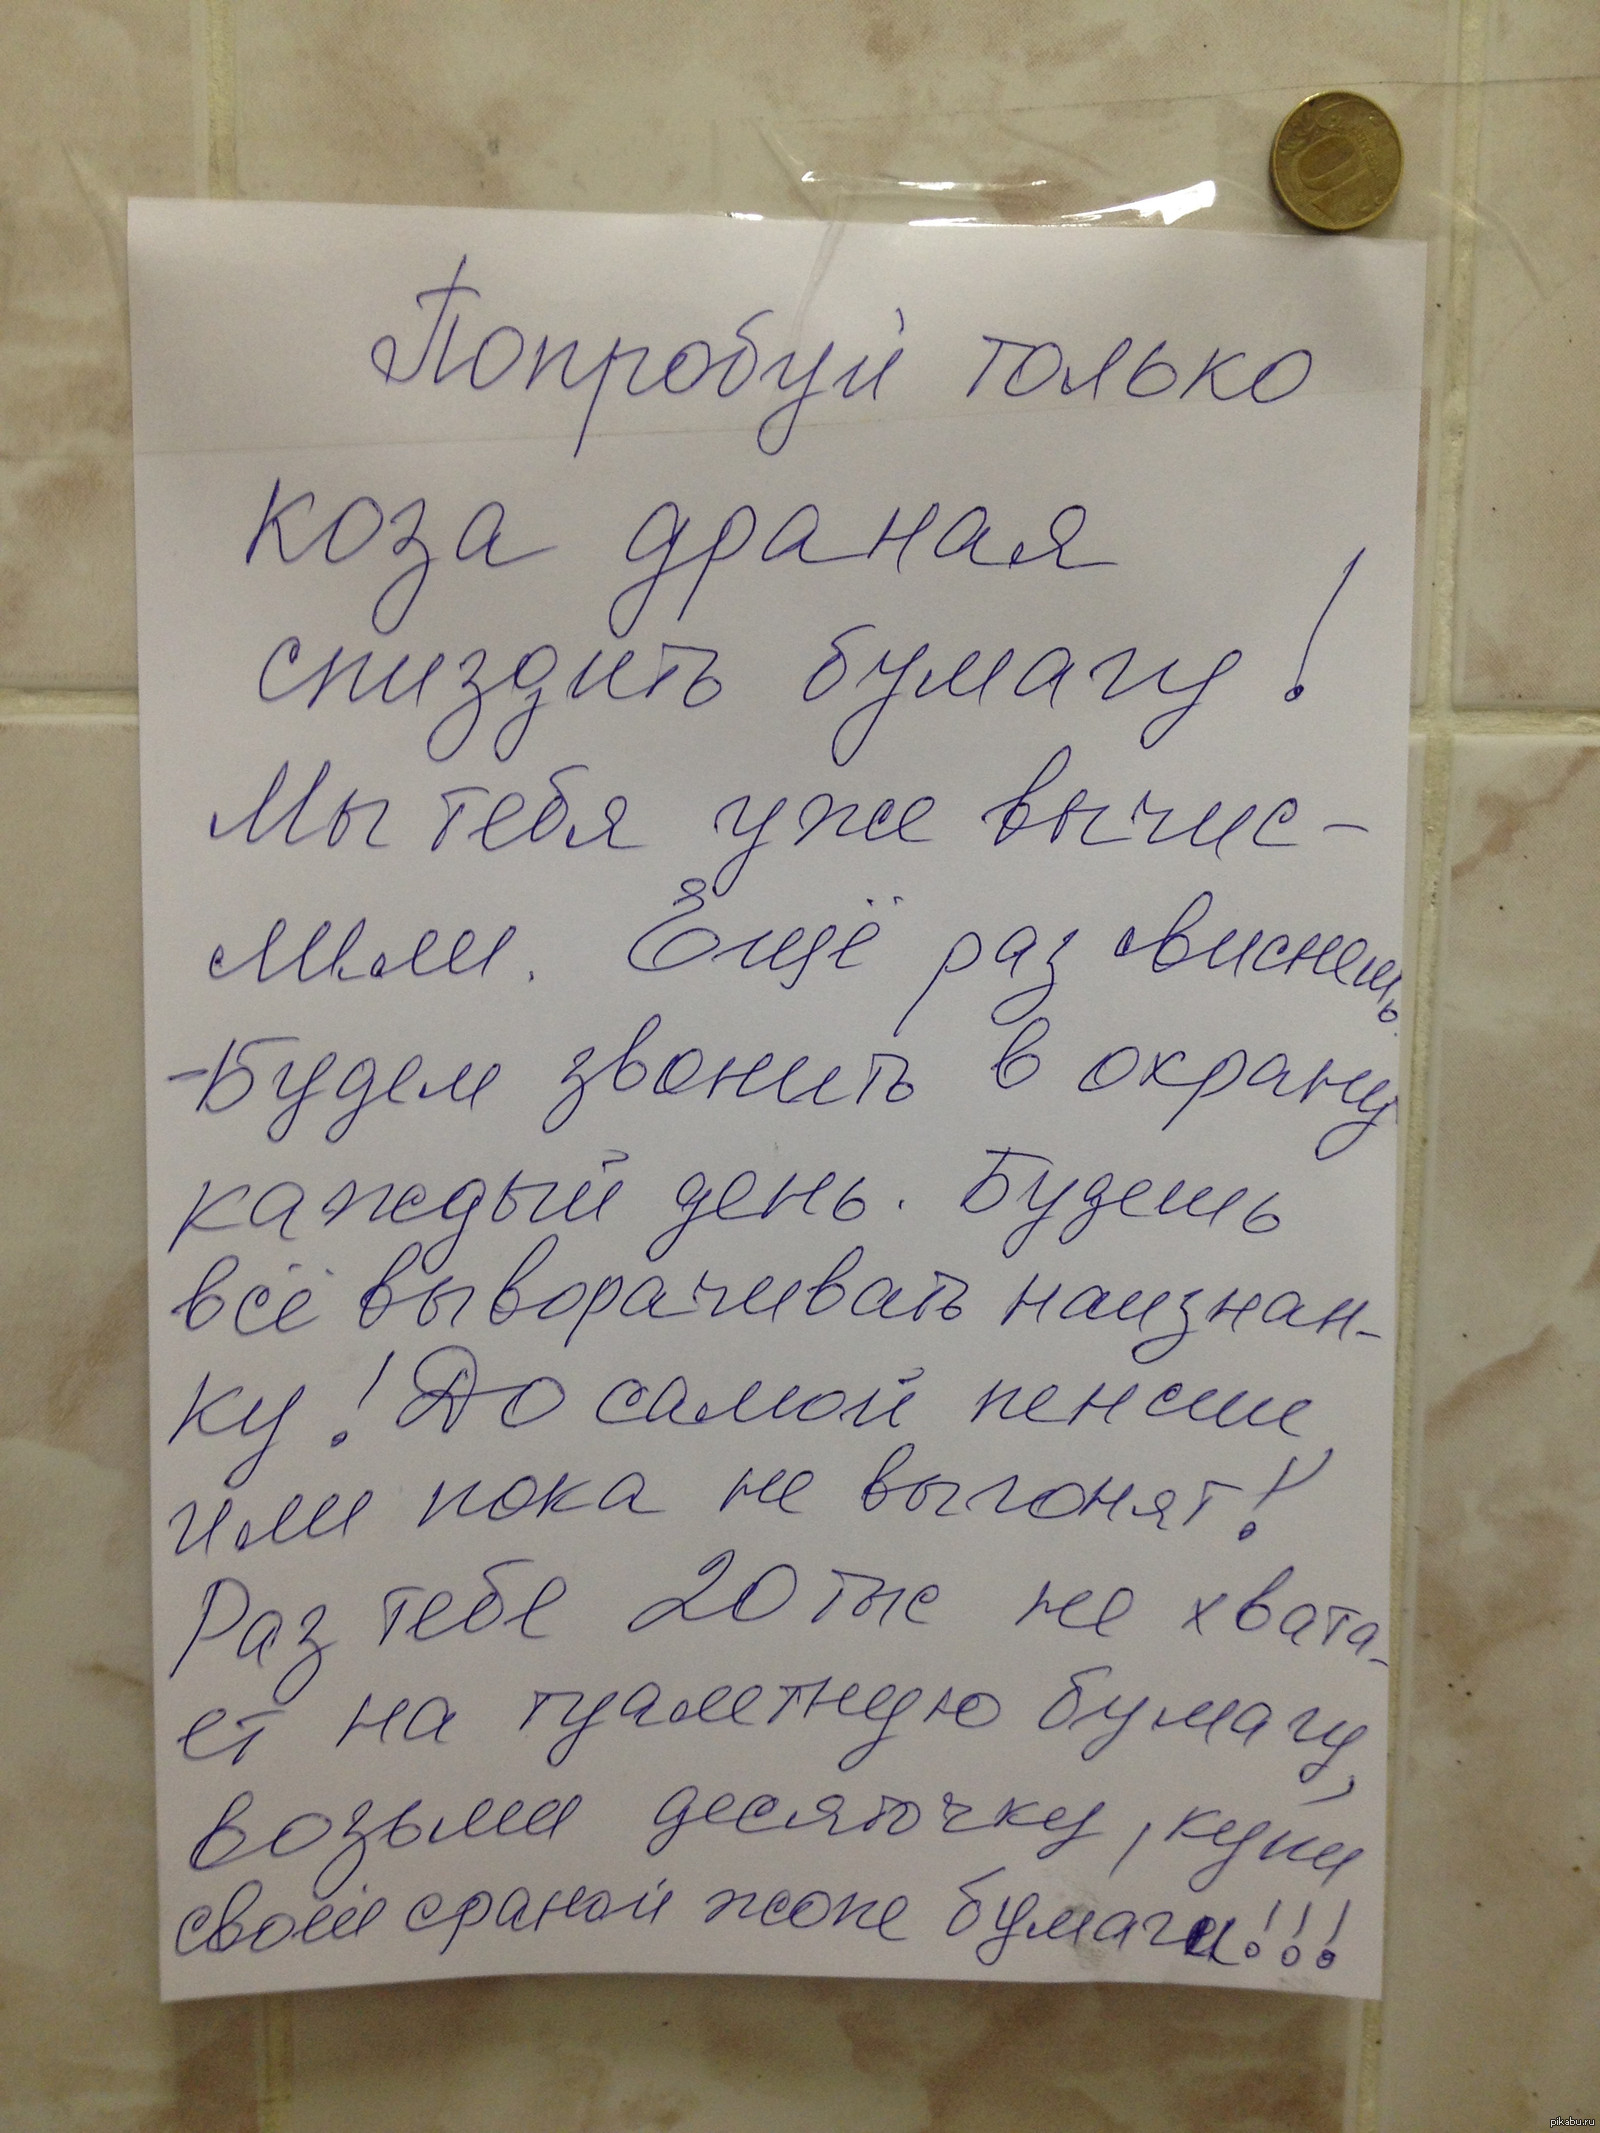 10
Попробуй только
коза драная
спиздить бумагу!
Мы тебя уже вычис-
лили. Ещё раз свиснешь
-Будем звонить в охрану
каждый день. Будешь
всё выворачивать наизнан-
ку! До самой пенсии
или пока не выгонят!
Раз тебе 20 тыс не хвата-
ет на туалетную бумагу,
возьми десяточку, купи
своей сраной жопе бумаги!!!
pikabu.ru